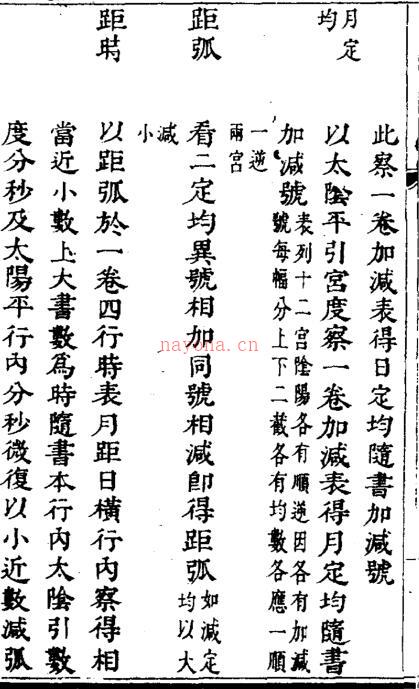 此察一卷加減表得日定均隨書加減號
月定
均
以太陰平引宮度察一卷加減表得月定均隨書
加減號
表列十二宮陰陽各有順逆因各有加減
號每幅分上下二截各有均數各應一順
一逆
兩宮
距弧
看二定均異號相加同號相減卽得距弧
如減定
均以大
減
小
距時
以距弧於一卷四行時表月距日橫行內察得相
當近小數上大書數爲時隨書本行內太陰引數
度分秒及太陽平行內分秒微復以小近數減弧
nayona.cn